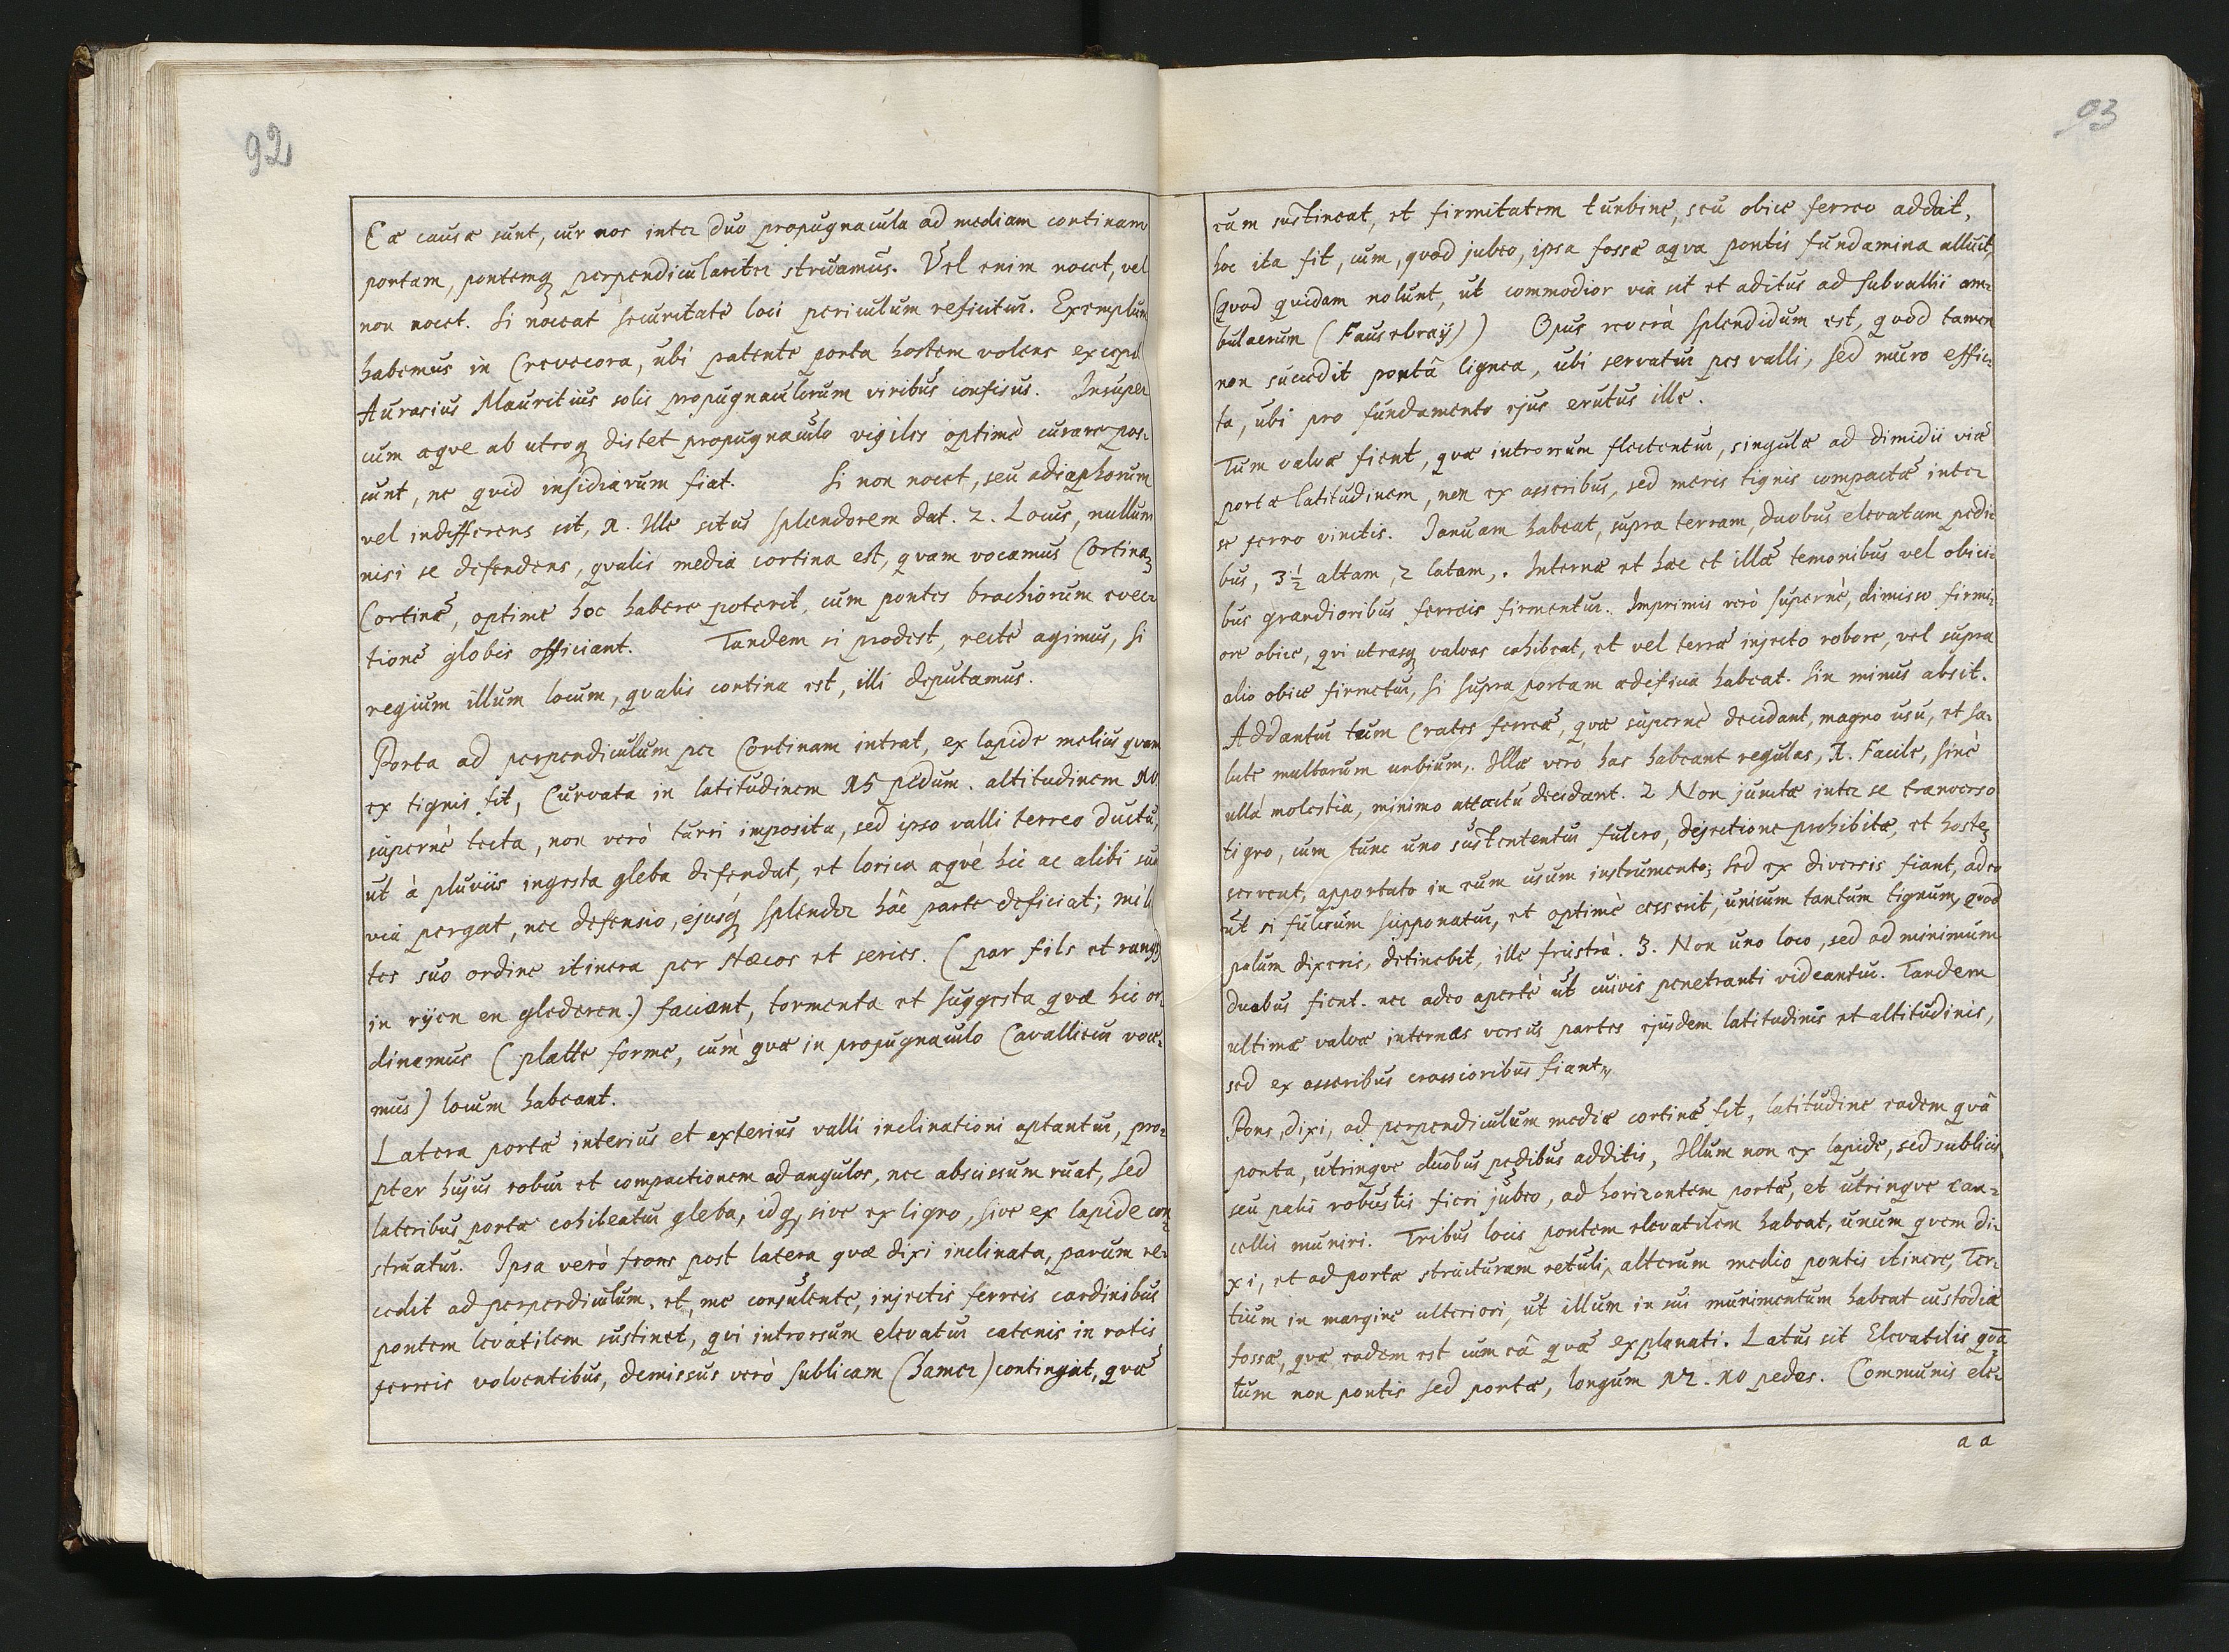 92
Eæ causæ sunt, cur nos inter duo propugnacula ad mediam cortinam
portam, pontemq; perpendiculariter struamus. Vel enim nocet, vel
non nocet. Si noceat securitate loci periculum reficitur. Exemplum
habemus in Crevecora, ubi patente porta hostem volens excepit
Auracius Mauritius solis propugnaculorum viribus confisus. Insuper
cum æqve ab utroq; distet propugnaculo vigiles optimè curare pos=
sunt, ne qvid insidiarum fiat. Si non nocet, seu adiaphorum
vel indifferens sit, 1. Ille situs splendorem dat. 2. Locus, nullum
nisi se defendens, qvalis media cortina est, qvam vocamus Cortinam
Cortinæ, optime hoc habere poterit, cum pontes brachiorum evec=
tione globis officiant. Tandem si prodest, rectè agimus, si
regium illum locum, qvalis cortina est, illi deputamus.
Porta ad perpendiculum per Cortinam intrat, ex lapide melius qvam
ex tignis fit, Curvata in latitudinem 15 pedum. altitudinem 10.
supernè tecta, non verò turri imposita, sed ipso valli terreo ductu,
ut à pluviis ingesta gleba defendat, et lorica æqvè hic ac alibi sua
via pergat, nec defensio, ejusq; splendor hâc parte deficiat; mili
tes suo ordine itinera per stæcos et series. (par fils et rangs
in rijen en glederen.) faciant, tormenta et suggesta qvæ hic or=
dinamus (platte forme, cum qvæ in propugnaculo Cavallieur voca=
mus) locum habeant.
Latera portæ interius et exterius valli inclinationi aptantur, pro=
pter hujus robur et compactionem ad angulos, nec abscissum ruat, sed
lateribus portæ cohibeatur gleba, idq; sive ex ligno, sive ex lapide con=
struatur. Ipsa verò frons post latera qvæ dixi inclinata, parum re=
cedit ad perpendiculum, et, me consulente, injectis ferreis cardinibus
pontem levatilem sustinet, qvi introrsum elevatur catenis in rotis
ferreis volventibus, demissus verò sublicam (hamer) contingat, qvæ
93
eam sustineat, et firmitatem turbine, seu obice ferreo addat,
hoc ita fit, cum, qvod jubeo, ipsa fossæ aqva pontis fundamina alluit,
(qvod qvidam nolunt, ut commodior via sit et aditus ad subvallii am=
bulacrum (Fausebraÿ)) Opus reverà splendidum est, qvod tamen
non succedit portâ lignea, ubi servatur pes valli, sed muro effic=
ta, ubi pro fundamento ejus erutus ille.
Tum valvæ fient, qvæ introrsum flectentur, singulæ ad dimidii viæ
portæ latitudinem, non ex asseribus, sed meris tignis compactæ inter
se ferro vinctis. Januam habeat, supra terram, duobus elevatam pedi=
bus, 3 1/2 altam, 2 latam,. Internæ et hæc et illæ temonibus vel obici=
bus grandioribus ferreis firmentur. Imprimis verò supernè, dimisso firmi=
ore obice, qvi utrasq; valvas cohibeat, et vel terræ injecto robore, vel supra
alio obice firmetur, si supra portam ædificia habeat. Sin minus absit.
Addantur tum Crates ferreæ, qvæ supernè decidant, magno usu, et sa=
lute multarum urbium,. Illæ verò has habeant regulas, 1. Facile, sinè
ullà molestia, minimo attactu decidant. 2 Non junctæ inter se transverso
tigno, cum tunc uno sustententur fulcro, dejectione prohibitæ, et hostem
servent, apportato in eum usum instrumento; sed ex diversis fiant, adeo
ut si fulcrum supponatur, et optimè cesserit, unicum tantum tignum, qvod
palum dixeris, detinebit, ille frustrà. 3. Non uno loco, sed ad minimum
duobus fient. nec adeo apertè ut cuivis penetranti videantur. Tandem
ultimæ valvæ internas versus partes ejusdem latitudinis et altitudinis,
sed ex asseribus crassioribus fiant,.
Pons, dixi, ad perpendiculum mediæ cortinæ fit, latitudine eadem qvâ
porta, utrinqve duobus pedibus additis, Illum non ex lapide, sed subliciis
seu palis robustis fieri jubeo, ad horizontem portæ, et utrinqve can=
cellis muniri. Tribus locis pontem elevatilem habeat, unum qvem di=
xi, et ad portæ structuram retuli, alterum medio pontis itinere, Ter=
tium in margine ulteriori, ut illum in sui munimentum habeat custodia
fossæ, qvæ eadem est cum eâ qvæ explanati. Latus sit Elevatilis qvan=
tum non pontis sed portæ, longum 12. 10 pedes. Communis ele=
a a